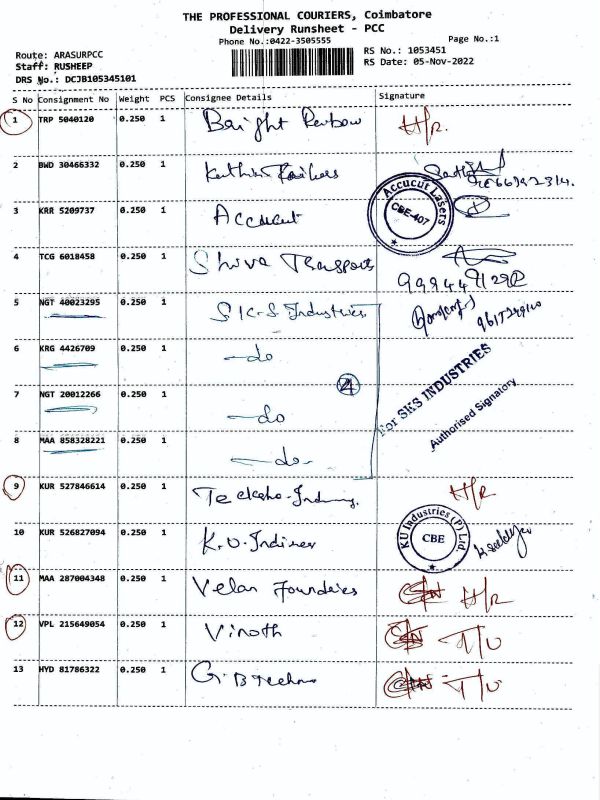 THE PROFESSIONAL COURIERS, Coimbatore
Delivery Runsheet - PCC
Phone No.:0422-3505555
Page No.:1
Route: ARASURPCC
RS No.: 1053451
Staff: RUSHEEP
RS Date: 05-Nov-2022
DRS No.: DCJB105345101
S No Consignment No Weight PCS Consignee Details Signature
1 TRP 5040120 0.250 1 H/R.
2 BWD 30466332 0.250 1
3 KRR 5209737 0.250 1 Accucut Accucut Lasers CBE-407
4 TCG 6018458 0.250 1 Shiva Transports
5 NGT 40023295 0.250 1 S K-S Industries
6 KRG 4426709 0.250 1 -do
7 NGT 20012266 0.250 1 -do
4
8 MAA 858328221 0.250 1 -do-
For SKS INDUSTRIES
Authorised Signatory
9 KUR 527846614 0.250 1 H/R
10 KUR 526827094 0.250 1 KU Industries (P) Ltd. CBE
11 MAA 287004348 0.250 1 Velan Foundries H/R
12 VPL 215649054 0.250 1 Vinoth T/U
13 HYD 81786322 0.250 1 T/U